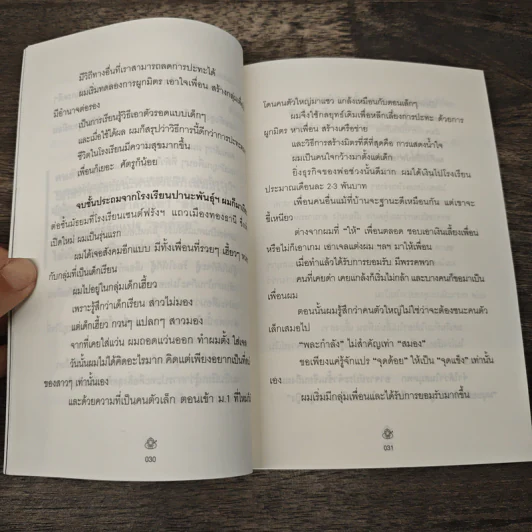 มีวิธีทางอื่นที่เราสามารถลดการปะทะได้
ผมเริ่มทดลองการผูกมิตร เอาใจเพื่อน สร้างกลุ่มเพื่อ
มีอำนาจต่อรอง
เป็นการเรียนรู้วิธีเอาตัวรอดแบบเด็กๆ
และเมื่อใช้ได้ผล ผมก็สรุปว่าวิธีการนี้ดีกว่าการปะทะ
ชีวิตในโรงเรียนมีความสุขมากขึ้น
เพื่อนก็เยอะ ศัตรูก็น้อย
จบชั้นประถมจากโรงเรียนปานะพันธุ์ฯ ผมก็มา
ต่อชั้นมัธยมที่โรงเรียนเซนต์ฟรังฯ แถวเมืองทองธานี ซึ่ง
เปิดใหม่ ผมเป็นรุ่นแรก
ผมได้เจอสังคมอีกแบบ มีทั้งเพื่อนที่รวยๆ เฮี้ยวๆ
กับกลุ่มที่เป็นเด็กเรียน
ผมไปอยู่ในกลุ่มเด็กเฮี้ยว
เพราะรู้สึกว่าเด็กเรียน สาวไม่มอง
แต่เด็กเฮี้ยว กวนๆ แปลกๆ สาวมอง
จากที่เคยใส่แว่น ผมถอดแว่นออก ทำผมตั้ง ใส่เจล
วันนั้นผมไม่ได้คิดอะไรมาก คิดแต่เพียงอยากเป็นที่
ของสาวๆ เท่านั้นเอง
และด้วยความที่เป็นคนตัวเล็ก ตอนเข้า ม.1 ที่ใหม่
030
โดนคนตัวใหญ่มาแซว แกล้งเหมือนกับตอนเด็กๆ
ผมจึงใช้กลยุทธ์เดิมเพื่อหลีกเลี่ยงการปะทะ ด้วยการ
ผูกมิตร หาเพื่อน สร้างเครือข่าย
และวิธีการสร้างมิตรที่ดีที่สุดคือ การแสดงน้ำใจ
ผมเป็นคนใจกว้างมาตั้งแต่เด็ก
ยิ่งธุรกิจของพ่อช่วงนั้นดีมาก ผมได้เงินไปโรงเรียน
ประมาณเดือนละ 2-3 พันบาท
เพื่อนคนอื่นแม้ที่บ้านจะฐานะดีเหมือนกัน แต่เขาจะ
ขี้เหนียว
ต่างจากผมที่ "ให้" เพื่อนตลอด ชอบเอาเงินเลี้ยงเพื่อน
หรือไม่ก็เอาเกม เอาเจลแต่งผม ฯลฯ มาให้เพื่อน
เมื่อทำแล้วได้รับการยอมรับ มีพรรคพวก
คนที่เคยด่า เคยแกล้งก็เริ่มไม่กล้า และบางคนก็ขอมาเป็น
เพื่อนผม
ตอนนั้นผมรู้สึกว่าคนตัวใหญ่ไม่ใช่ว่าจะต้องชนะคนตัว
เล็กเสมอไป
"พละกำลัง" ไม่สำคัญเท่า "สมอง"
ขอเพียงแค่รู้จักแปร "จุดด้อย" ให้เป็น "จุดแข็ง" เท่านั้น
เอง
ผมเริ่มมีกลุ่มเพื่อนและได้รับการยอมรับมากขึ้น
031